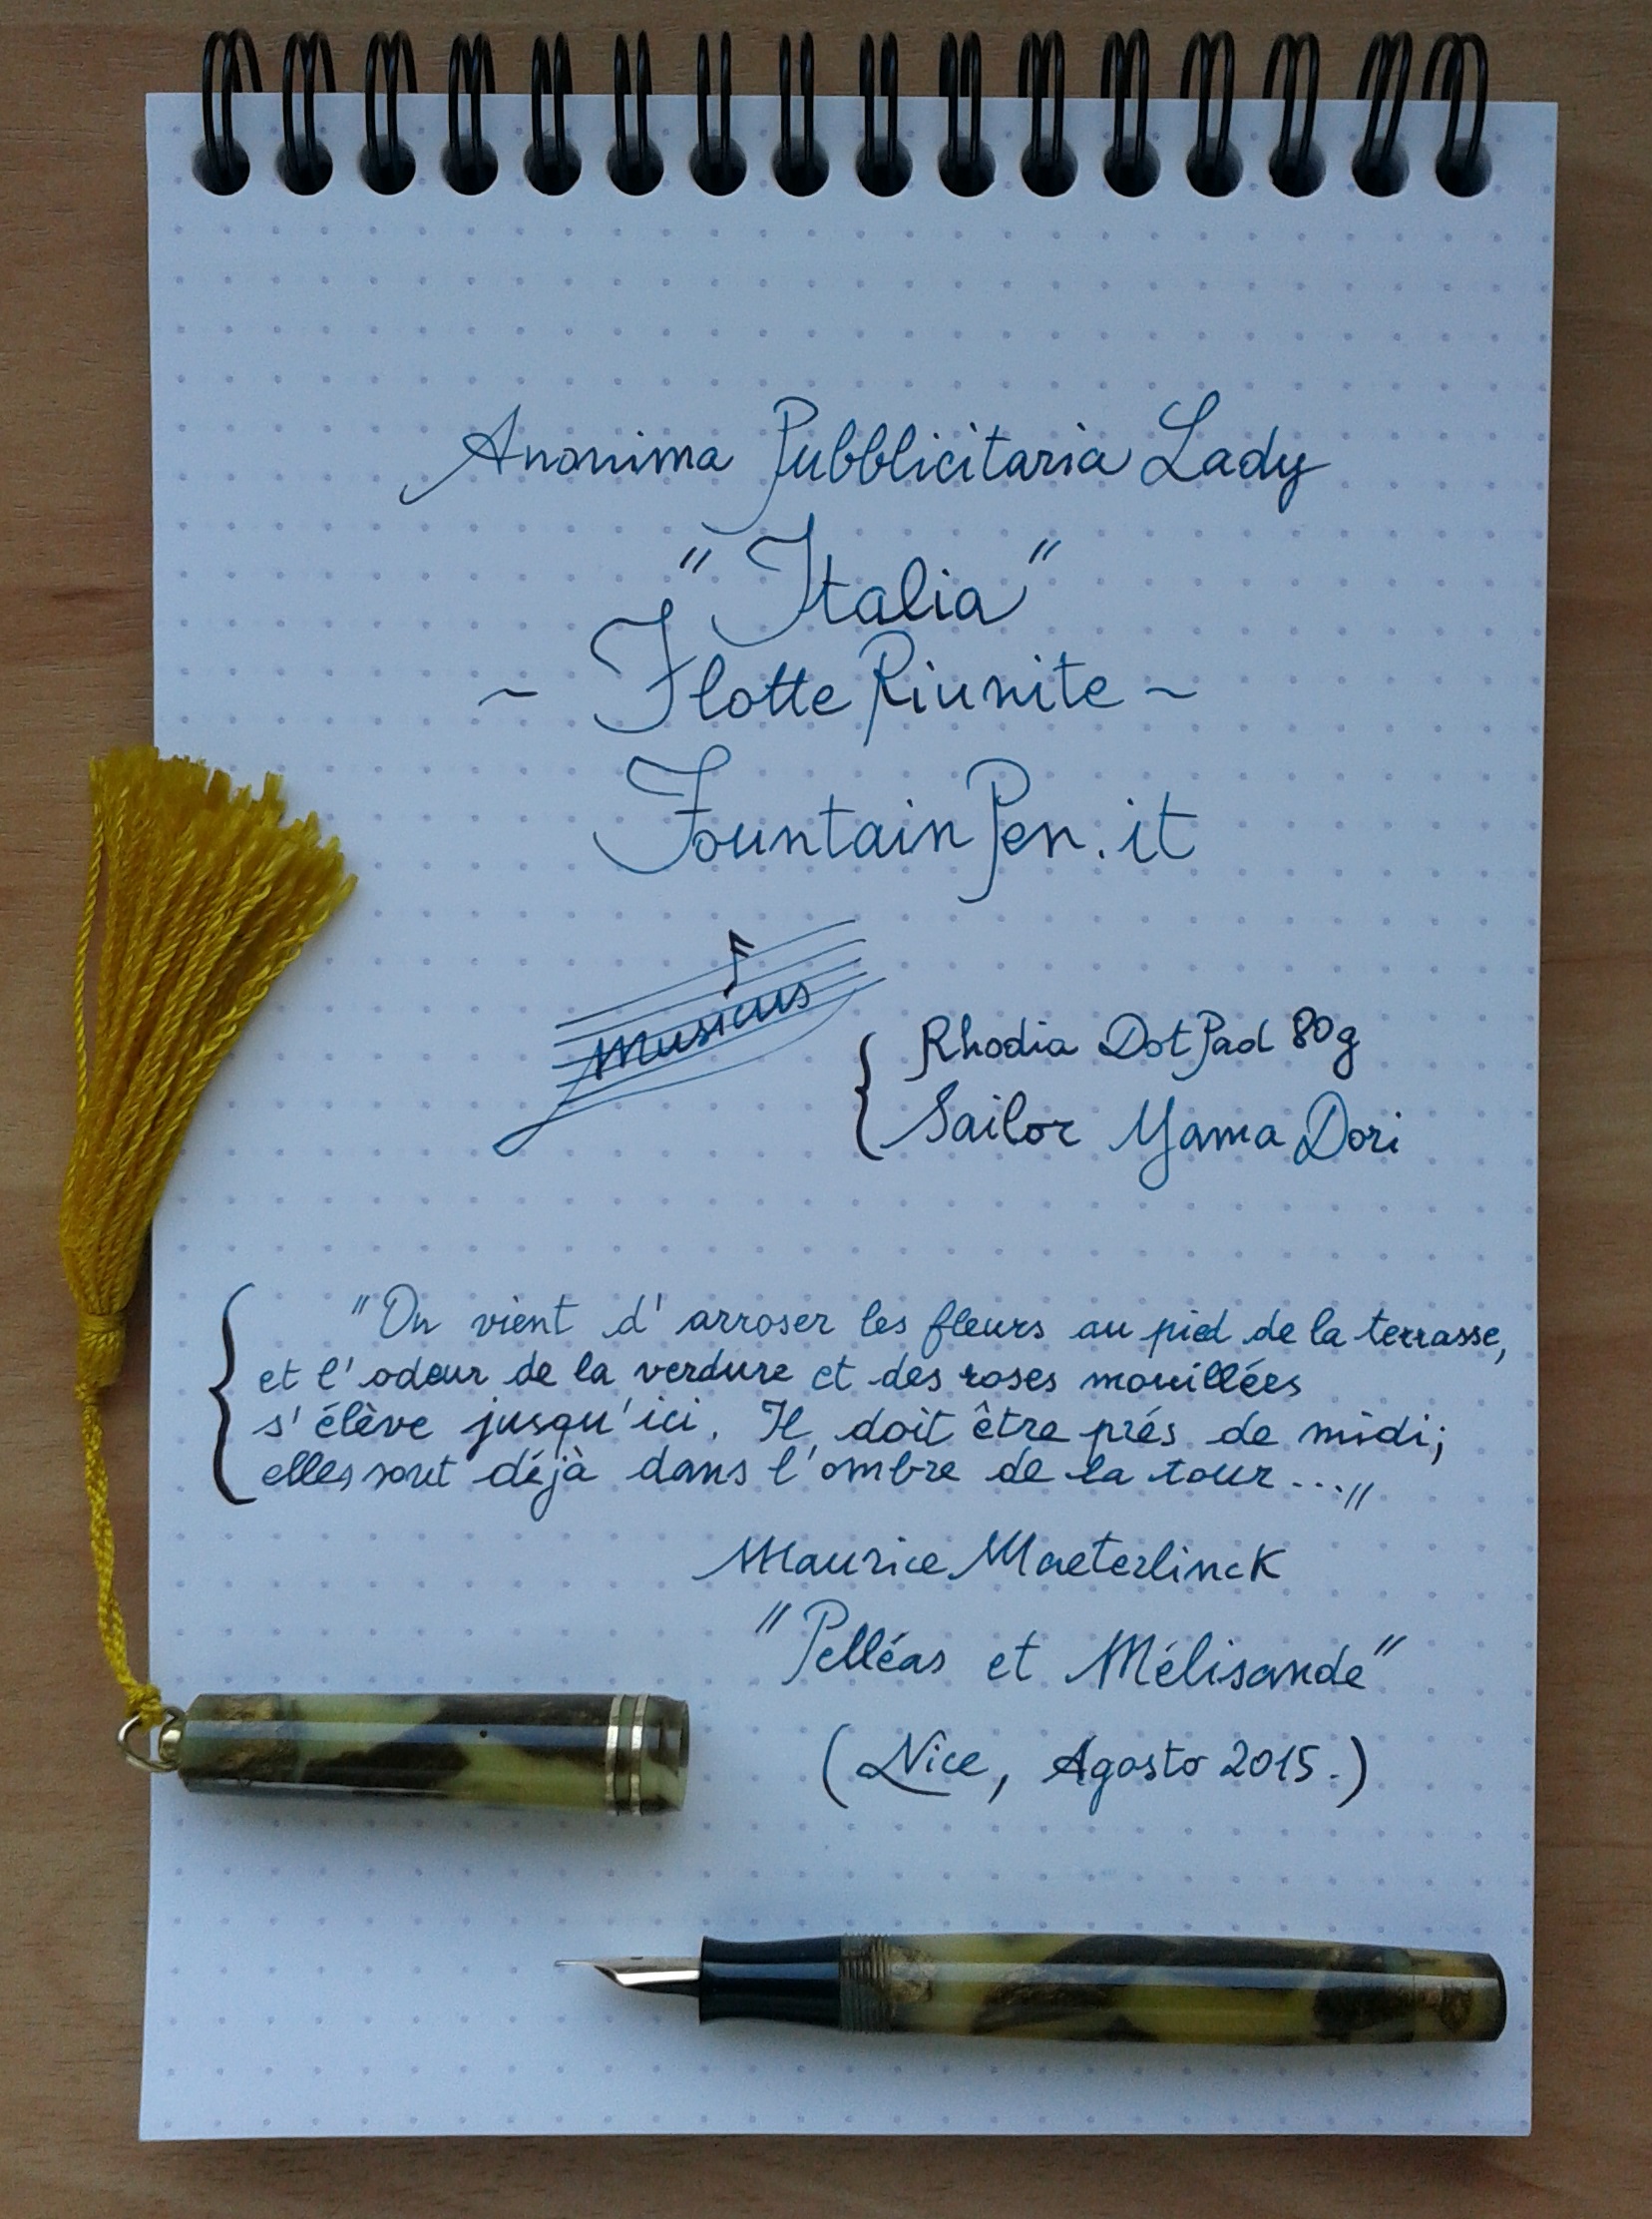 Anonima Pubblicitaria Lady
"Italia"
~ Flotte Riunite ~
FountainPen.it
Musicus
{ Rhodia DotPad 80g
Sailor Yama Dori
{ "On vient d'arroser les fleurs au pied de la terrasse,
et l'odeur de la verdure et des roses mouillées
s'élève jusqu'ici. Il doit être prés de midi;
elles sont déjà dans l'ombre de la tour..."
Maurice Maeterlinck
"Pelléas et Mélisande"
(Nice, Agosto 2015.)